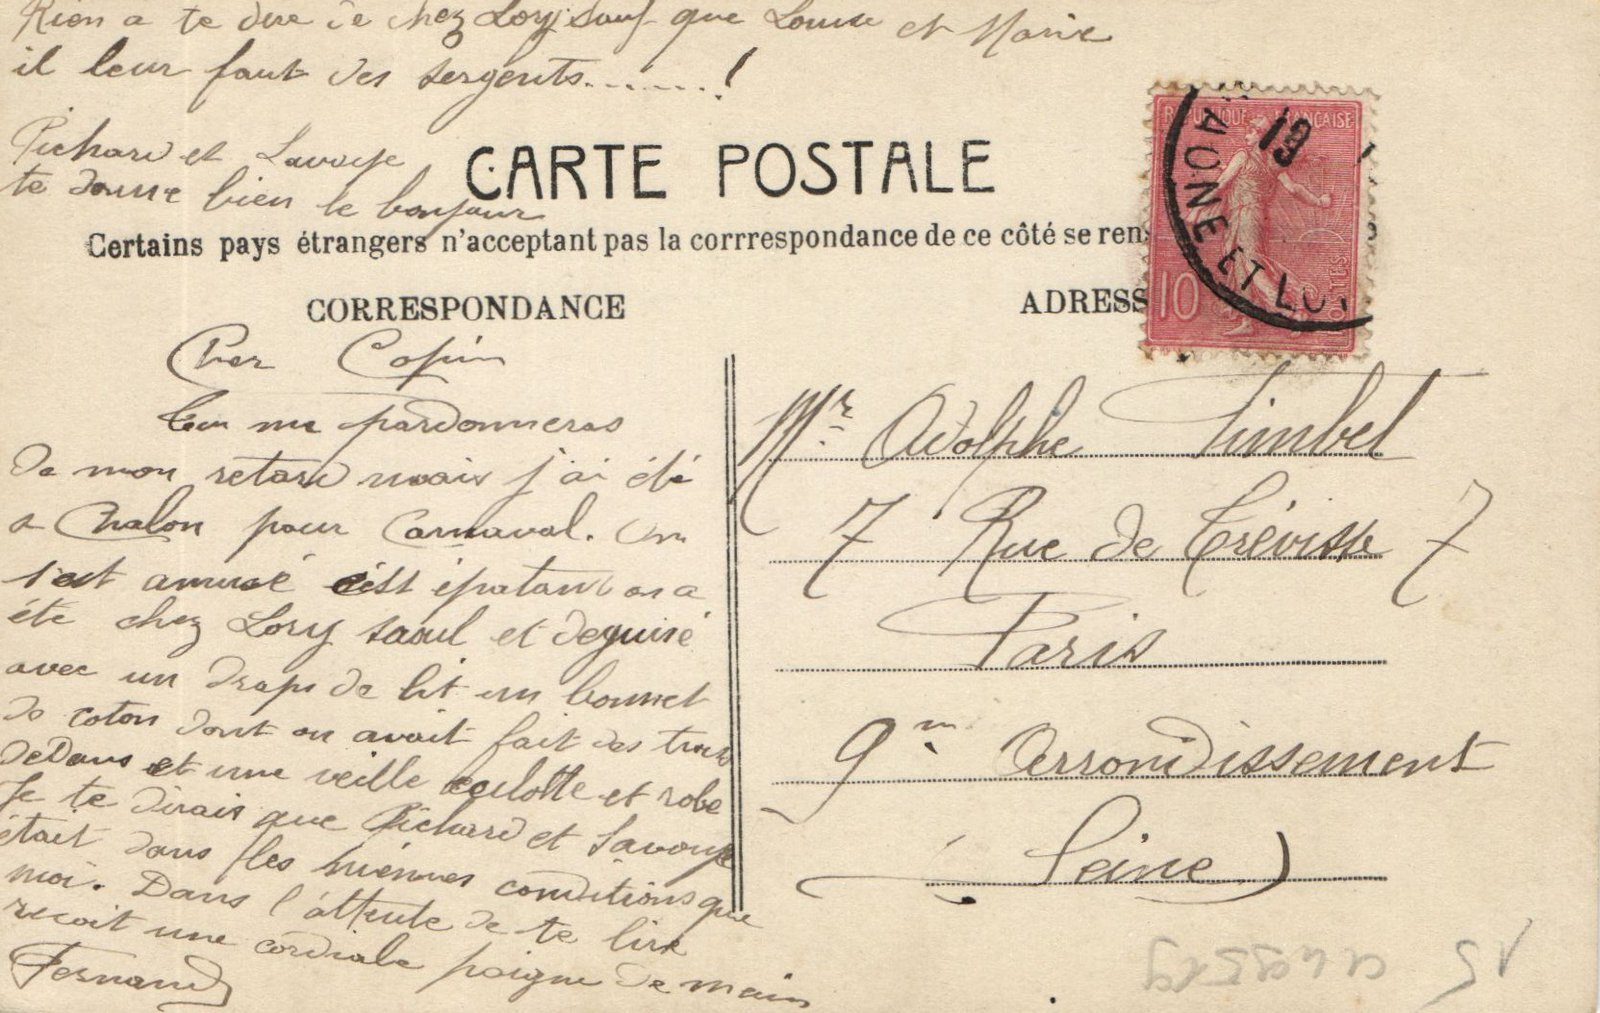 Rien a te dire de chez Lory sauf que Louise et Marie
il leur faut des sergents........!
Pichard et Lavoye
te donne bien le bonjour
CARTE POSTALE
Certains pays étrangers n'acceptant pas la corrrespondance de ce côté se ren
CORRESPONDANCE
ADRESS
REPUBLIQUE FRANÇAISE
10
POSTES
19
SAONE ET LOI
Cher Copin
tu me pardonneras
de mon retard mais j'ai été
a Chalon pour Carnaval. On
s'est amusé c'est épatant on a
éte chez Lory saoul et deguisé
avec un drap de lit un bonnet
de coton dont on avait fait des trous
dedans et une veille culotte et robe
Je te dirais que Pichard et Lavoye
était dans les mêmes conditions que
moi. Dans l'attente de te lire
recoit une cordiale poigne de main
Fernand
Mr Adolphe Timbel
7 Rue de Trévisse 7
Paris
9m Arrondissement
(Seine)